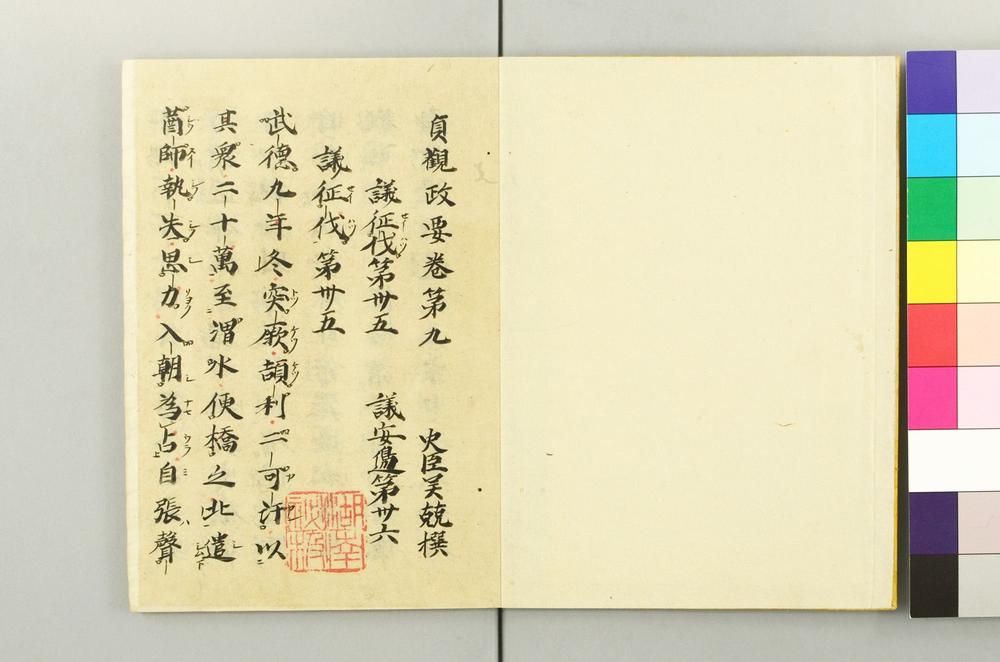 貞觀政要卷第九 史臣吴兢撰
議征伐第卅五 議安邊第卅六
議征伐第卅五
武德九年冬突厥頡利二可汗以
其衆二十萬至渭水便橋之北遣
酋帥執失思力入朝為占自張聲